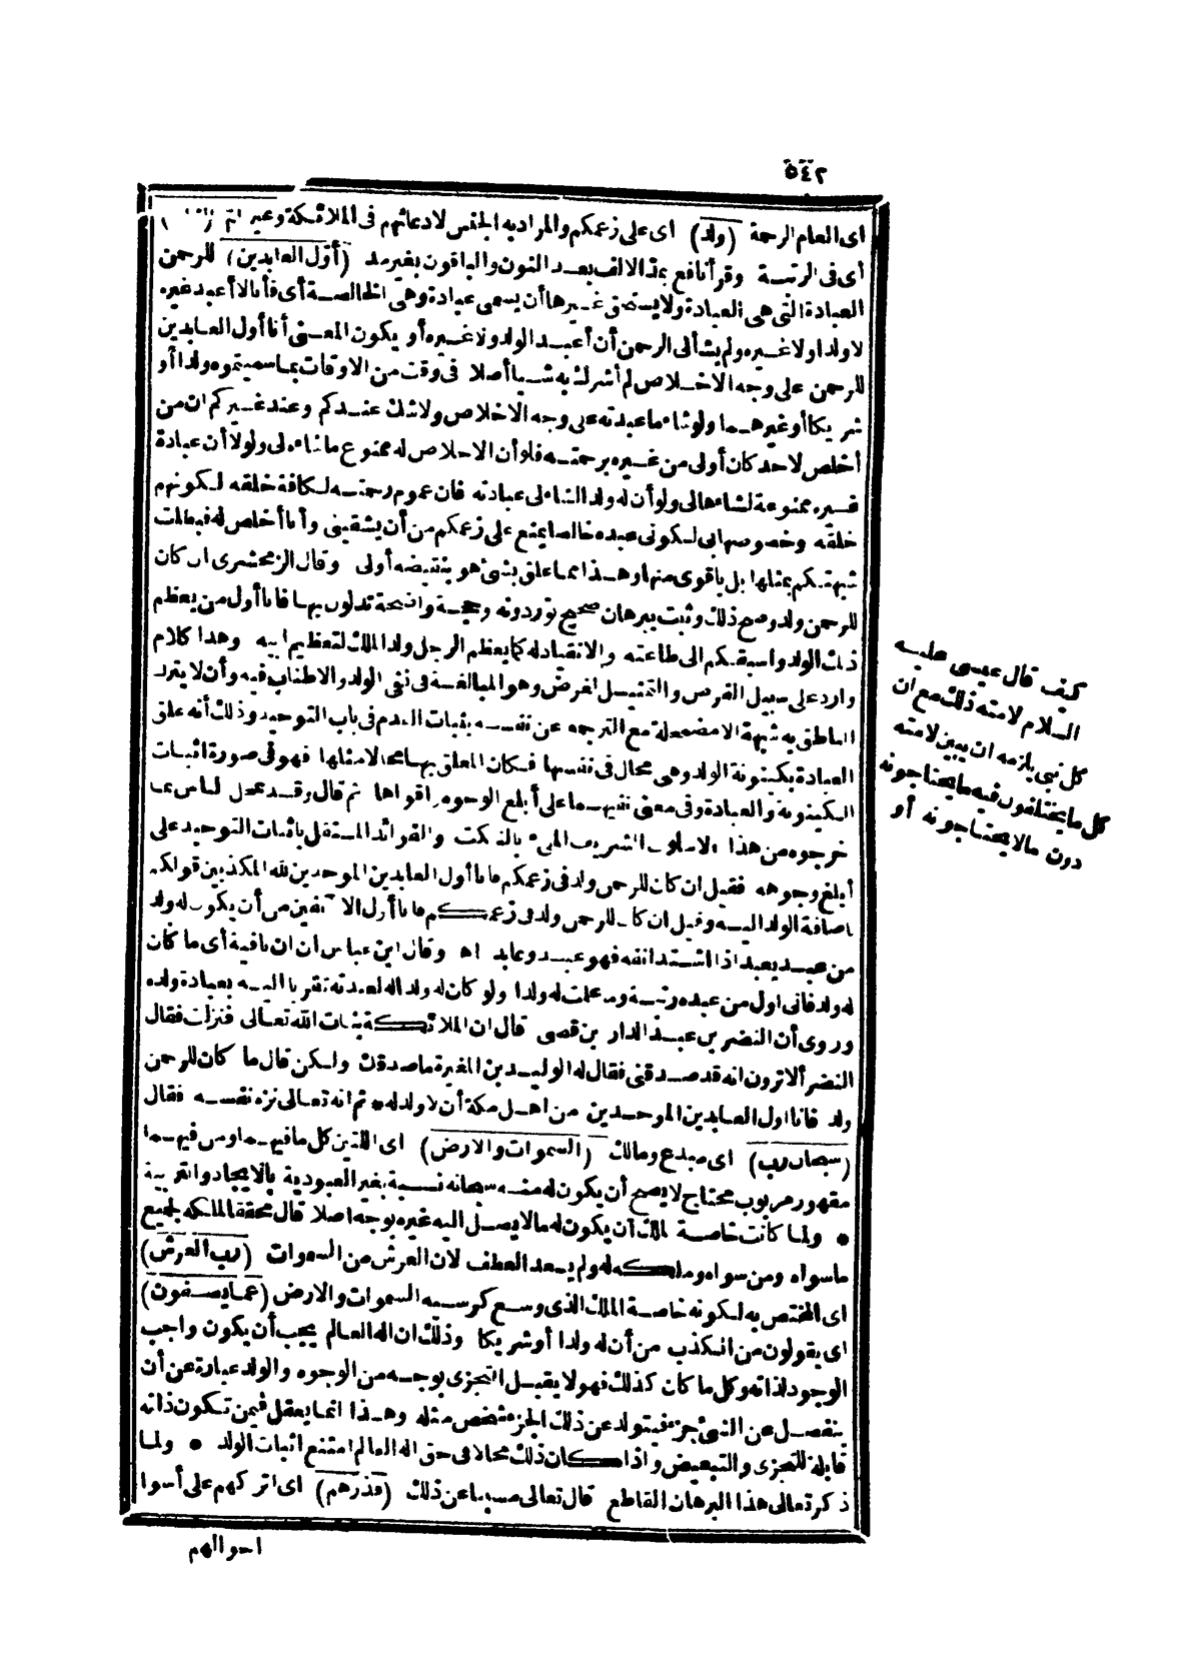 ٥٤٢
اى العام الرحمة (ولد) اى على زعمكم والمراد به الجنس لادعائهم فى الملائكة وغيرهم
أى فى الرتبة وقرأ نافع بمد الالف بعد النون والباقون بغير مد (أول العابدين) للرحمن
العبادة التى هى العبادة ولا يستحق غيرها أن يسمى عبادة وهى الخالصة أى فأنا لا أعبد غيره
لا ولدا ولا غيره ولم يشأ لى الرحمن أن أعبد الولد ولا غيره أو يكون المعنى أنا أول العابدين
للرحمن على وجه الاخلاص لم أشرك به شيأ أصلا فى وقت من الاوقات بما سميتموه ولدا أو
شريكا أو غيرهما ولو شاء ما عبدته على وجه الاخلاص ولا شك عندكم وعند غيركم ان من
أخلص لاحد كان أولى من غيره برحمته فلو أن الاخلاص له ممنوع ما شاءه لى ولولا أن عبادة
غيره ممنوعة لشاءها لى ولو أن له ولدا لشاء لى عبادته فان عموم رحمته لكافة خلقه لكونهم
خلقه وخصوصها بى لكونى عبده خالصا يمنع على زعمكم من أن يشقينى وأنا أخلص له فبطلت
شبهتكم بمثلها بل باقوى منها وهذا مما علق بشئ هو بنقيضه أولى وقال الزمخشرى ان كان
للرحمن ولد وصح ذلك وثبت ببرهان صحيح توردونه وحجة واضحة تدلون بها فانا أول من يعظم
ذلك الولد واسبقكم الى طاعته والانقياد له كما يعظم الرجل ولد الملك لتعظيم ابيه وهذا كلام
وارد على سبيل الفرض والتمثيل لغرض وهو المبالغة فى نفى الولد والاطناب فيه وأن لا يترك
الناطق به شبهة الا مضمحلة مع الترجمة عن نفسه بثبات القدم فى باب التوحيد وذلك أنه علق
العبادة بكينونة الولد وهى محال فى نفسها فكان المعلق بها محالا مثلها فهو فى صورة اثبات
الكينونة والعبادة وفى معنى نفيهما على أبلغ الوجوه واقواها ثم قال وقد تمحل الناس بما
خرجوه من هذا الاسلوب الشريف الملىء بالنكت والفوائد المستقل باثبات التوحيد على
أبلغ وجوهه فقيل ان كان للرحمن ولد فى زعمكم فانا أول العابدين الموحدين لله المكذبين قولكم
باضافة الولد اليه وقيل ان كان للرحمن ولد فى زعمكم فانا أول الآنفين من أن يكون له ولد
من عبد يعبد اذا اشتد انفه فهو عبد وعابد اه وقال ابن عباس ان ان نافية أى ما كان
له ولد فانى اول من عبده رتبة وما علمت له ولدا ولو كان له ولد اله لعبدته تقربا اليه بعبادة ولده
وروى أن النضر بن عبد الدار بن قصى قال ان الملائكة بنات الله تعالى فنزلت فقال
النضر ألا ترون انه قد صدقنى فقال له الوليد بن المغيرة ما صدقك ولكن قال ما كان للرحمن
ولد فانا اول العابدين الموحدين من اهل مكة أن لا ولد له * ثم انه تعالى نزه نفسه فقال
(سبحان رب) اى مبدع ومالك (السموات والارض) اى اللتين كل ما فيهما ومن فيهما
مقهور مربوب محتاج لا يصح أن يكون له منه سبحانه نسبة بغير العبودية بالايجاد والتربية
* ولما كانت خاصة الملك أن يكون له ما لا يصل اليه غيره بوجه اصلا قال محققا لملكه لجميع
ما سواه ومن سواه وملكه له ولم يعد العطف لان العرش من السموات (رب العرش)
اى المختص به لكونه خاصة الملك الذى وسع كرسيه السموات والارض (عما يصفون)
اى يقولون من الكذب من أن له ولدا أو شريكا وذلك ان اله العالم يجب أن يكون واجب
الوجود لذاته وكل ما كان كذلك فهو لا يقبل التجزى بوجه من الوجوه والولد عبارة عن أن
ينفصل عن الشئ جزء فيتولد عن ذلك الجزء شخص مثله وهذا انما يعقل فيمن تكون ذاته
قابلة للتجزى والتبعيض واذا كان ذلك محالا فى حق اله العالم امتنع اثبات الولد * ولما
ذكر تعالى هذا البرهان القاطع قال تعالى مسببا عن ذلك (فذرهم) اى اتركهم على أسوا
احوالهم
كيف قال عيسى عليه
السلام لامته ذلك مع ان
كل نبى يلزمه ان يبين لامته
كل ما يختلفون فيه ما يحتاجونه
دون ما لا يحتاجونه أو